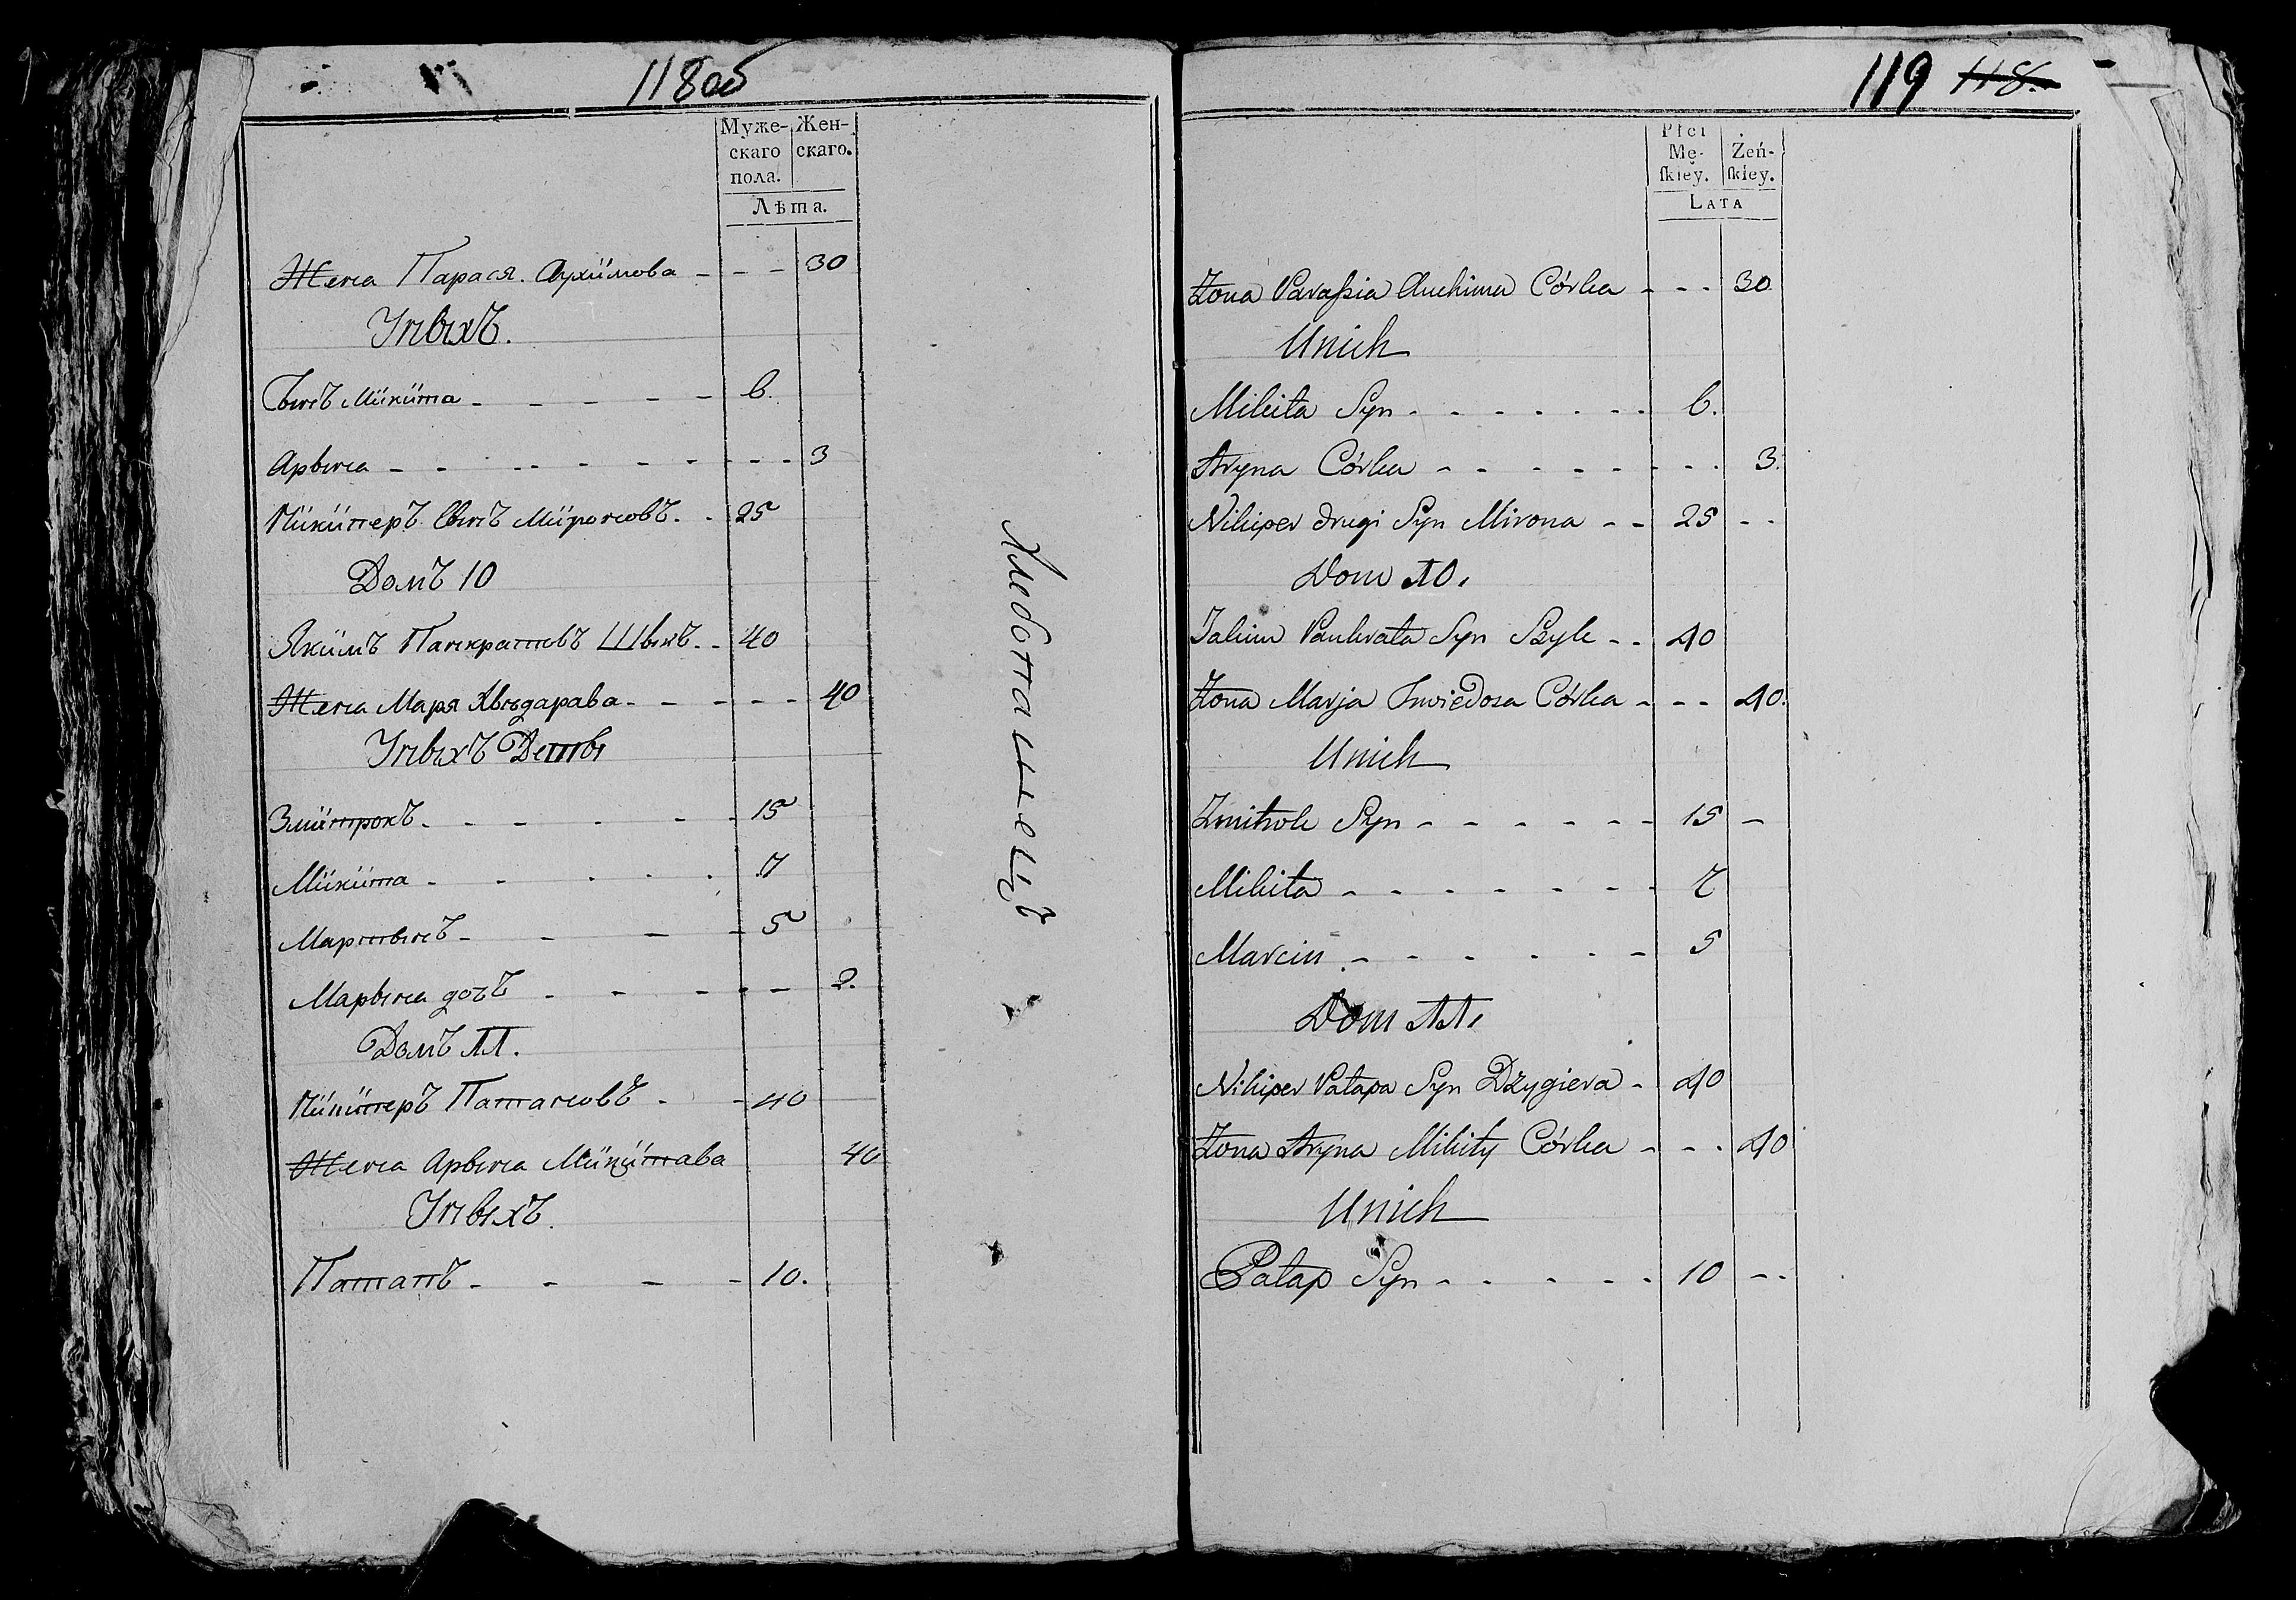 118об
Муже- Жен-
скаго скаго.
пола.
Лѣта.
Жена Парася Аухимова - - - 30
У ныхъ.
Сынъ Микита - - - - - 6.
Арына - - - - - - - - - 3
Никиперъ Сынъ Мироновъ. - 25
Домъ 10
Якимъ Панкратовъ Шыкъ - - 40
Жена Маря Хвѣдарава - - - - - 40
У ныхъ Деты
Змитрокъ - - - - - 15
Микита - - - - - 7
Мартынъ - - - - 5
Марына дочъ - - - - - 2.
Домъ 11.
Никиперъ Патаповъ - - 40
Жена Арына Микитава 40
У ныхъ.
Патапъ - - - - 10.
Хлебопашецъ
119 118.
Płci
Mę- Żeń-
ſkiey. ſkiey.
LATA
Żona Paraſsia Auchima Córka - - - 30
U nich
Mikita Syn - - - - - - - 6.
Aryna Córka - - - - - - - - 3.
Nikiper drugi Syn Mirona - - 25 - -
Dom 10.
Jakim Pankrata Syn Szyk - - 40
Żona Marja Chwiedora Córka - - - 40.
U nich
Zmitrok Syn - - - - - - 15 -
Mikita - - - - - - - 7
Marcin - - - - - - 5
Dom 11.
Nikiper Patapa Syn Dzygiera - 40
Żona Aryna Mikity Córka - - - 40
U nich
Patap Syn - - - - - 10 - -